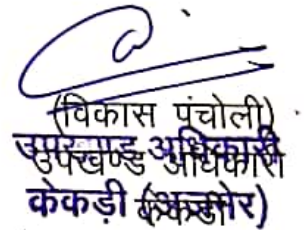 (विकास पंचोली)
उपखण्ड अधिकारी
उपखण्ड अधिकारी
केकड़ी (अजमेर)
केकड़ी